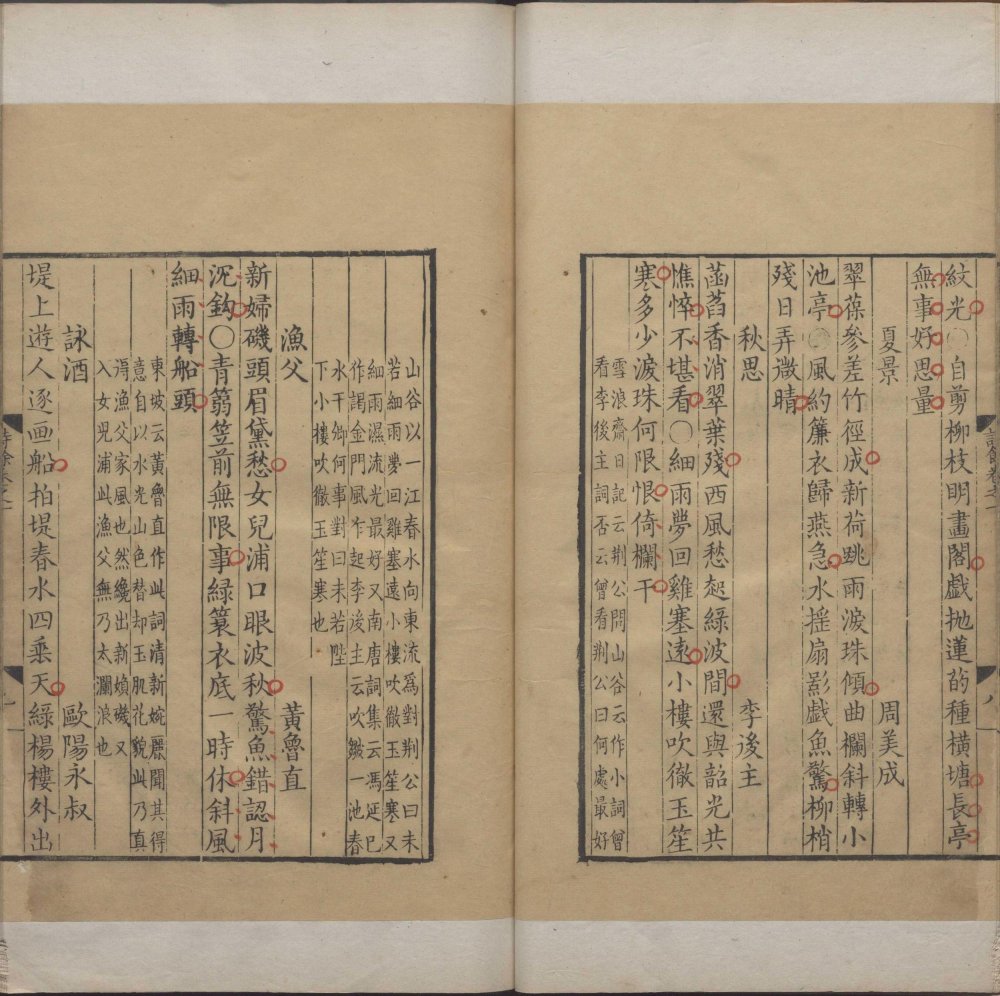 紋光〇自剪柳枝明畫閣戲抛蓮菂種橫塘長亭
無事好思量
夏景
周美成
翠葆參差竹徑成新荷跳雨淚珠傾曲欄斜轉小
池亭〇風約簾衣歸燕急水揺扇影戲魚驚柳梢
殘日弄微晴
秋思
李後主
菡萏香消翠葉殘西風愁起綠波間還與韶光共
憔悴不堪看〇細雨夢回雞塞遠小樓吹徹玉笙
寒多少淚珠何限恨倚欄干
雪浪齋日記云荆公問山谷云作小詞曾
看李後主詞否云曾看荆公曰何處最好
山谷以一江春水向東流爲對荆公曰未
若細雨夢回雞塞遠小樓吹徹玉笙寒又
細雨濕流光最好又南唐詞集云馮延巳
作謁金門風乍起李後主云吹皺一池春
水干卿何事對曰未若陛
下小樓吹徹玉笙寒也
漁父
黃魯直
新婦磯頭眉黛愁女兒浦口眼波秋驚魚錯認月
沉鈎〇青篛笠前無限事緑簑衣底一時休斜風
細雨轉船頭
東坡云黃魯直作此詞清新婉麗聞其得
意自以水光山色替却玉肌花貌此乃真
得漁父家風也然纔出新婦磯又
入女兒浦此漁父無乃太瀾浪也
詠酒
歐陽永叔
堤上遊人逐画船拍堤春水四垂天綠楊樓外出